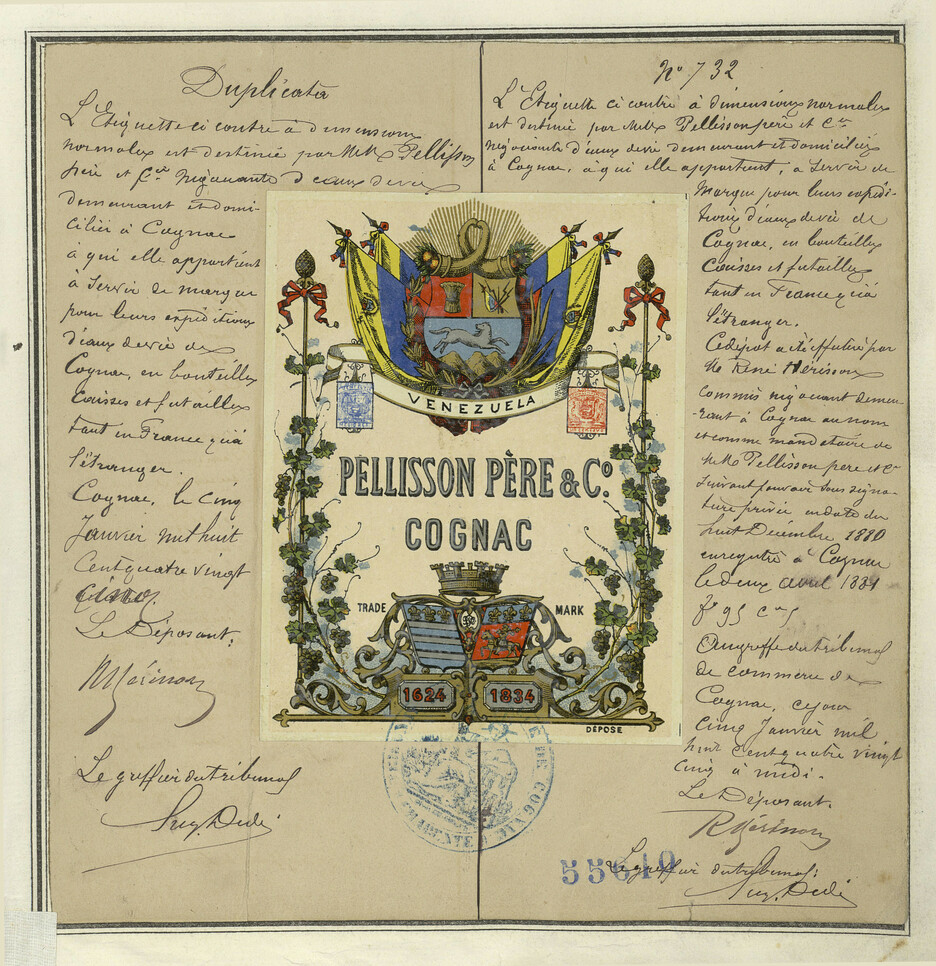 Duplicata
L'Etiquette ci contre à dimensions
normales est destinée par MM. Pellisson
père et Cie négociants d'eaux de vie
demeurant et domi-
ciliés à Cognac
à qui elle appartient
à servir de marque
pour leurs expéditions
d'eaux de vie de
Cognac, en bouteilles
Caisses et futailles
tant en France qu'à
l'étranger.
Cognac, le cinq
Janvier mil huit
Cent quatre vingt
Cinq.
Le Déposant.
Le greffier du tribunal
VENEZUELA
PELLISSON PÈRE & Co.
COGNAC
TRADE MARK
1624 1834
DÉPOSÉ
No 732
L'Etiquette ci contre à dimensions normales
est destinée par MM. Pellisson père et Cie
négociants d'eaux de vie demeurant et domiciliés
à Cognac, à qui elle appartient, à servir de
Marque pour leurs expédi-
tions d'eaux de vie de
Cognac, en bouteilles
Caisses et futailles
tant en France qu'à
l'étranger.
Ce dépôt a été effectué par
M. René Hérisson
commis négociant demeu-
-rant à Cognac au nom
et comme mandataire de
MM. Pellisson père et Cie
suivant pouvoir sous signa-
ture privée en date du
huit Décembre 1880
enregistré à Cognac
le deux avril 1881
fo 95 c
Au greffe du tribunal
de commerce de
Cognac, ce jour
Cinq Janvier mil
huit cent quatre vingt
cinq à midi.
Le Déposant.
Le greffier du tribunal:
DE COGNAC
CHARENTE